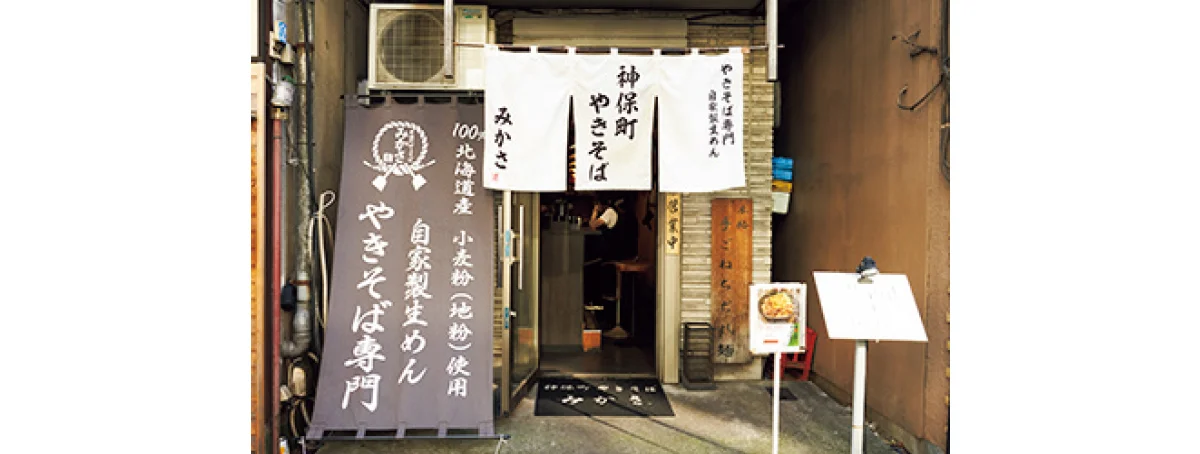 やきそば専門
自家製生めん
神保町
やきそば
みかさ
100%
北海道産 小麦粉(地粉)使用
みかさ
自家製生めん
やきそば専門
営業中
本格
神保町 やきそば
みかさ